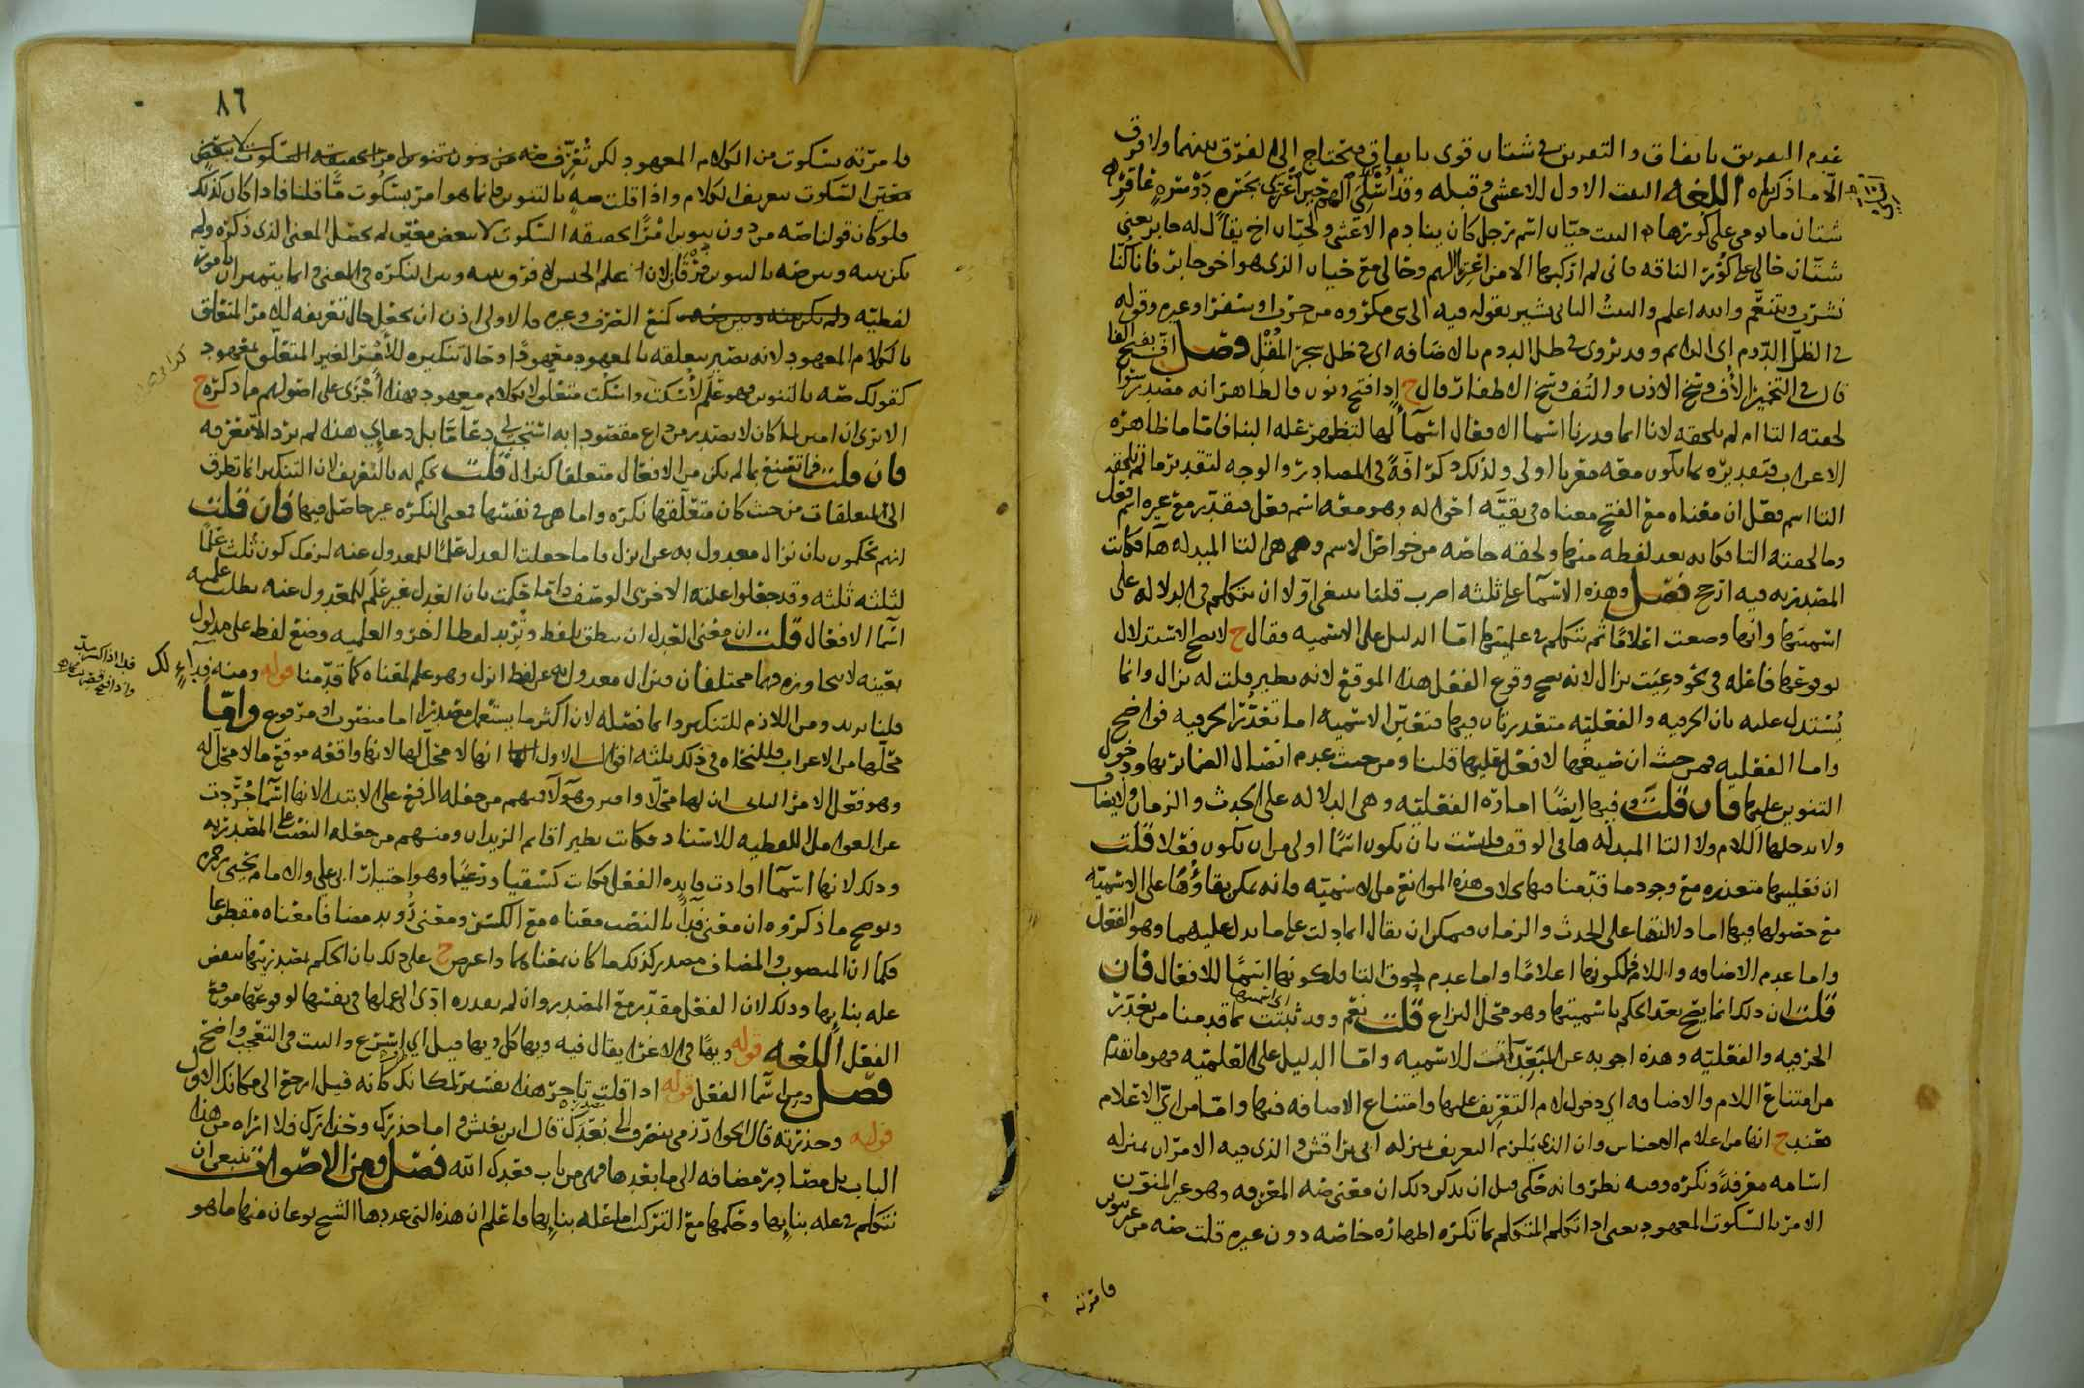 عدم التفريق باتفاق والتفريق في شتان قوى باتفاق فيحتاج الى الفرق بينهما ولا فرق
الا ما ذكرناه اللغة البيت الاول للاعشى وقبله وقد
شتان ما يومي على كورها في البيت حيان اسم رجل كان ينادم الاعشى ولحيان اخ يقال له جابر يعني
شتان حالي على كور الناقة فاني لم ازكبها الا من الهم وحالي مع حيان الذي هو اخو جابر فانا كنا
نشرب ونتنعم والله اعلم والبيت الثاني يشير بقوله فيه الى مكروه من حرب او سفر او غيره وقوله
في الظل الدوم اي الدائم وقد يروى في ظل الدوم بالاضافة اي في ظل شجر المقل فصل
قال في التخمير الأف وسخ الاذن والتف وسخ الاظفار قال ح اذا فتح ونون فالظاهر انه مصدر سوا
لحقته التا ام لم تلحقه لانا انما قدرنا اسما الافعال اسماً لها لتظهر علة البنا فاما ما ظاهره
الاعراب فتقديره بما يكون معه معربا اولى ولذلك ذكر افة في المصادر والوجه لتقدير ما لم تلحقه
التا اسم فعل ان معناه مع الفتح معناه في بقية اخواته وهو معه اسم فعل فيقدر مع غيره اسم فعل
وما لحقته التا فكانه بعد لفظه منها ولحقه خاصة من خواص الاسم وهي هذه التا المبدلة ها فكانت
المصدرية فيه ارجح فصل وهذه الاسما على ثلثة اضرب قلنا ينبغي اولا ان نتكلم في الدلالة على
اسميتها وانها وضعت اعلامًا ثم نتكلم في علميتها اما الدليل على الاسمية فقال ح لا يصح الاستدلال
بوقوعها فاعله في نحو دعيت نزال لانه يصح وقوع الفعل هذا الموقع لانه نظير قلت له نزال وانما
يستدل عليه بان الحرفية والفعلية متعذرتان فيها فتعين الاسمية اما تعذر الحرفية فواضح
واما الفعلية فمن حيث ان صيغها لا فعل عليها قلنا ومن حيث عدم اتصال الضمائر بها ودخول
التنوين عليها فان قلت وفيها ايضًا امارة الفعلية وهي الدلالة على الحدث والزمان وايضا
ولا يدخلها اللام ولا التا المبدلة ها في الوقف فليست بان تكون اسمًا اولى من ان تكون فعلا قلت
ان فعليتها متعذرة مع وجود ما قدمنا فيها بخلاف هذه الموانع من الاسمية فانه يمكن بقاؤها على الاسمية
مع حصولها فيها اما دلالتها على الحدث والزمان فيمكن ان يقال انما دلت على ما يدل عليهما وهو الفعل
واما عدم الاضافة واللام فلكونها اعلامًا واما عدم لحوق التا فلكونها اسمًا للافعال فان
قلت ان ذلك انما يصح بعد الحكم باسميتها وهو محل النزاع قلت نعم وقد ثبتت بما قدمنا من تعذر
الحرفية والفعلية وهذه اجوبة عن المبعدات للاسمية واما الدليل على العلمية فهو ما تقدم
من امتناع اللام والاضافة اي دخول لام التعريف عليها وامتناع الاضافة فيها واما من اي الاعلام
فعند ح انها من اعلام الاجناس وان الذي يلزم التعريف بمنزلة ابي براقش والذي فيه الامران بمنزلة
اسامة معرفة ونكرة وفيه نظر فانه حكى قبل ان يذكر ذلك ان معنى صه المعرفة وهو غير المنون
الامر بالسكوت المعهود يعني اذا تكلم المتكلم بما تكره اظهاره خاصة دون غيره قلت صه من غير تنوين
فامرته
٨٦
فامرته بسكوت من الكلام المعهود لكن تعرف
معين السكوت بتعريف الكلام واذا قلت صهٍ بالتنوين فانما هو امر بسكوت ما قلنا فاذا كان كذلك
فلو كان قولنا صه من دون تنوين امرًا بحقيقة السكوت لا ببعض معين لم يحصل المعنى الذي ذكره ولم
يكن بينه وبين صه بالتنوين فرقًا لان علم الجنس لا فرق بينه وبين النكرة في المعنى انما يتميز بامور
لفظية كمنع الصرف وغيره فالاولى اذن ان يجعل حال تعريفه للامر المتعلق
بالكلام المعهود لانه يصير بتعلقه بالمعهود معهودًا وحال تنكيره للأمر الغير المتعلق بمعهود
كقولك صه بالتنوين فهو علم لأسكت واسكت متعلق لا بكلام معهود فهذا أجرى على اصولهم مما ذكره ح
الا ترى ان امين لما كان لا يصدر من داع مقصود به استجب لي دعا مّا بل دعاءي هذا لم يرد الا معرفة
فان قلت فما تصنع بما لم يكن من الافعال متعلقا كنزال قلت نحكم له بالتعريف لان التنكير انما تطرق
الى المتعلقات من حيث كان متعلقها نكرة واما هي في نفسها فمعنى النكرة غير حاصل فيها فان قلت
انهم يحكمون بان نزال معدول به عن انزل فاما جعلت العدل علمًا للمعدول عنه لزمك كون ثلث علمًا
لثلثة ثلثة وقد جعلوا علته الاخرى الوصف واما حكمت بان العدل غير علم للمعدول عنه بطلت علمية
اسما الافعال قلت ان معنى العدل ان ينطق بلفظ وتريد لفظا اخر والعلمية وضع لفظ على مدلول
بعينه لا يتجاوزه فهما مختلفان فنزال معدول به عن لفظ انزل وهو علم لمعناه كما قدمنا قوله ومنه فداءٍ لك
قلنا يريد ومن اللازم للتنكير وانما فصله لان اكثر ما يستعمل مصدرًا اما منصوب او مرفوع واما
محلها من الاعراب فللنحاه في ذلك ثلثة اقوال الاول انها لا محل لها لانها واقعة موقع ما لا محل له
وهو فعل الامر الثاني ان لها محلا وامير وهولا فمنهم من جعله الرفع على الابتدا لانها اسما جردت
عن العوامل اللفظية للاسناد فكانت نظير اقائم الزيدان ومنهم من جعله النصب على المصدرية
وذلك لانها اسما افادت فايدة الفعل فكانت كسقيا ورعيًا وهو اختيار ابي علي والامام يحيى بن حمزه
ويوضح ما ذكروه ان معنى فداً بالنصب معناه مع الكسر ومعنى رويد مضافا معناه مقطوعا
فكما ان المنصوب والمضاف مصدر كذلك ما كان بمعناهما واعرض ح على ذلك بان الحكم بمصدريتها ينقض
علة بنايها وذلك لان الفعل مقدر مع المصدر وان لم يقدره ادى الى عملها في نفسها لوقوعها موقع
الفعل اللغة قوله ويهًا في الاغرا يقال فيه ويها كل ويها فيل اي اسرع والبيت في التعجب واضح
فصل ومن اسما الفعل قوله اذا قلت تاخر هذا تفسير لمكانك كانه قيل ارجع الى مكانك الاول
قوله وحذرته قال الخوارزمي يتصرف الى بعدك قال ابن يعيش واما حذرك وحذارك فلا اراه من هذا
الباب بل مصادر مضافة الى ما بعدها فهي من باب قعدك الله فصل ومن الاصوات ينبغي ان
نتكلم في علة بنايها وحكمها مع التركيب اما علة بنايها فاعلم ان هذه التي عددها الشيخ نوعان منها ما هو